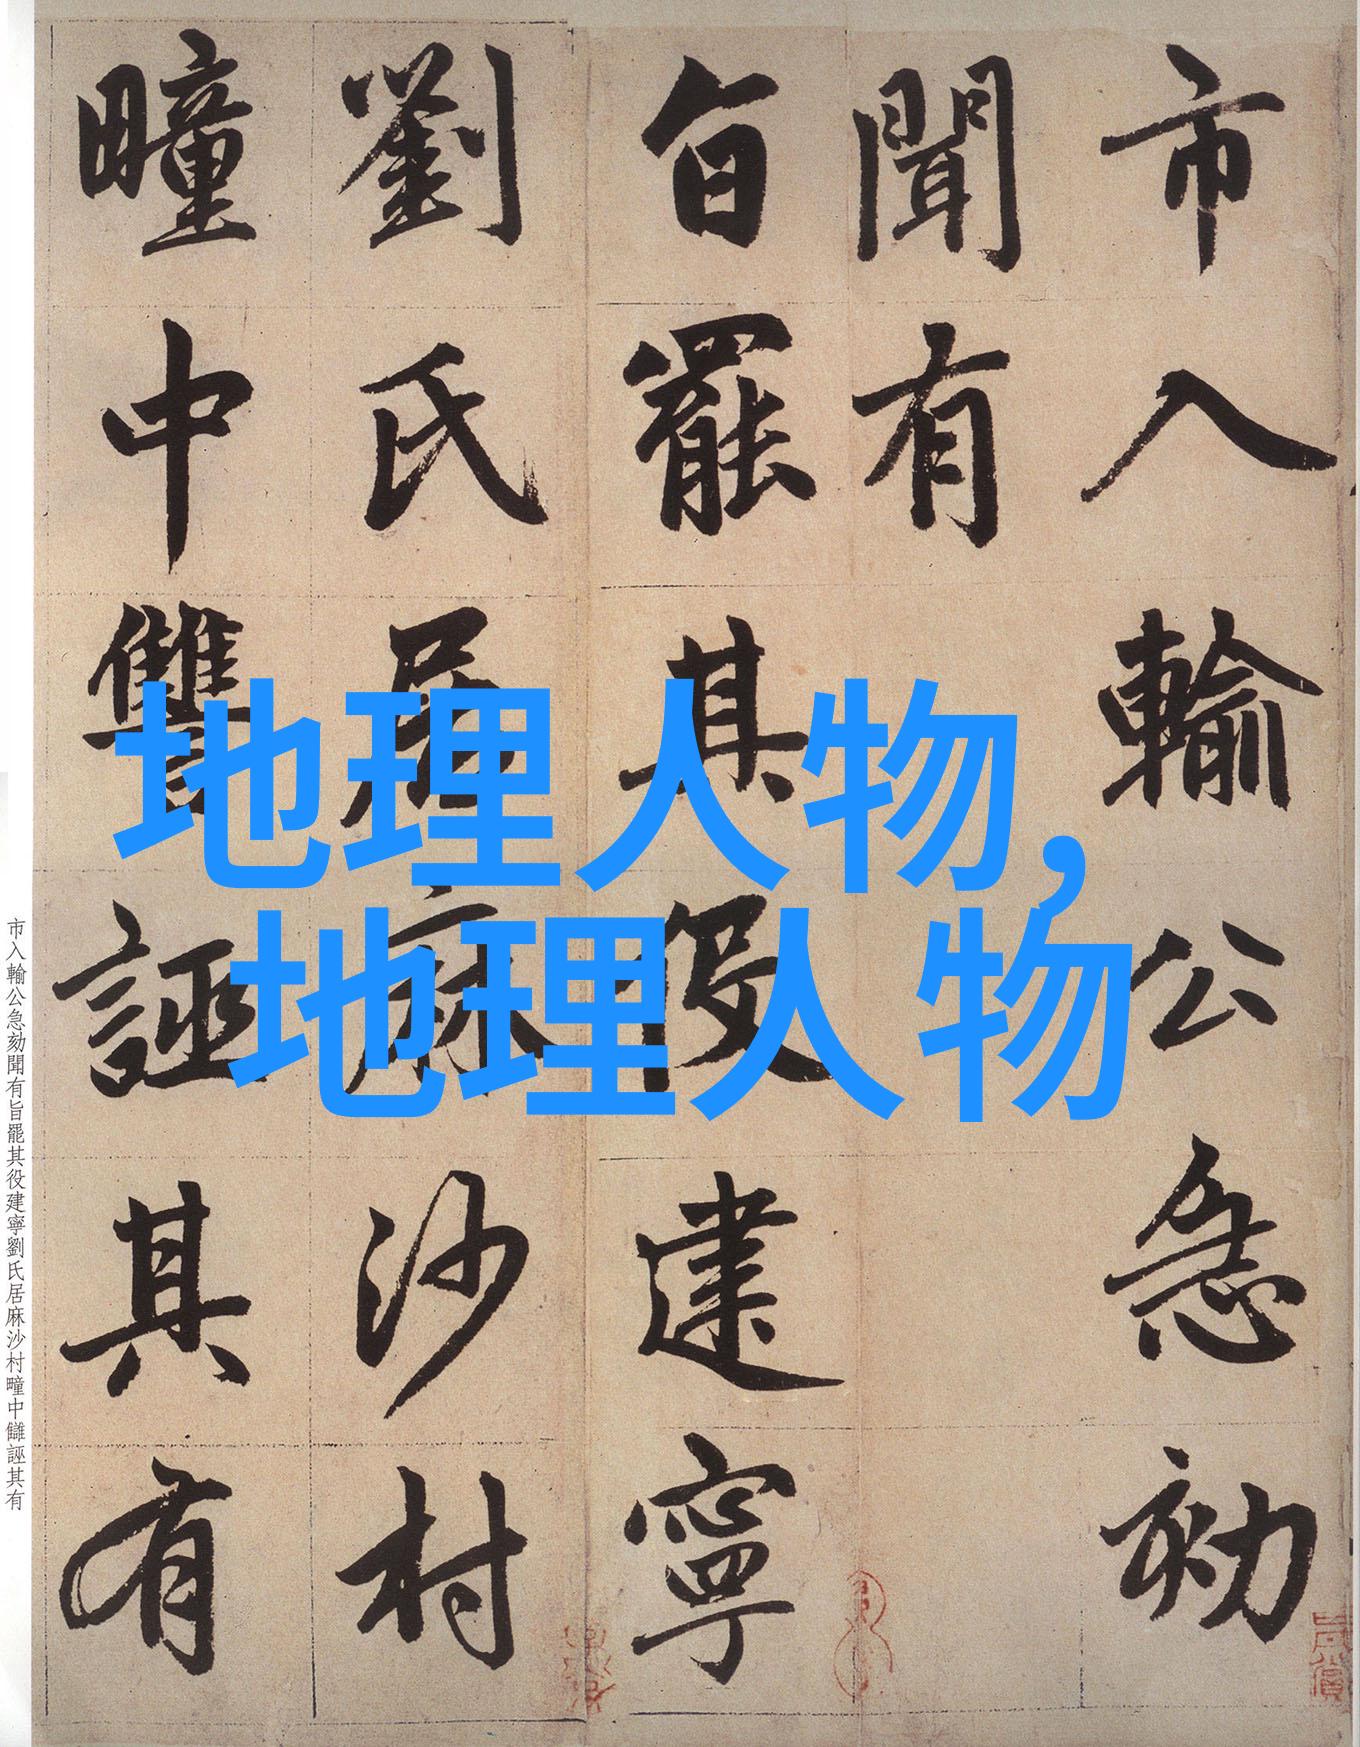 市入輸公急刻
聞有
旨罷其役建寧
劉氏居麻沙村
疃中讎誣其有
地理人物,
地理人物
市入輸公急刻聞有旨罷其役建寧劉氏居麻沙村疃中讎誣其有